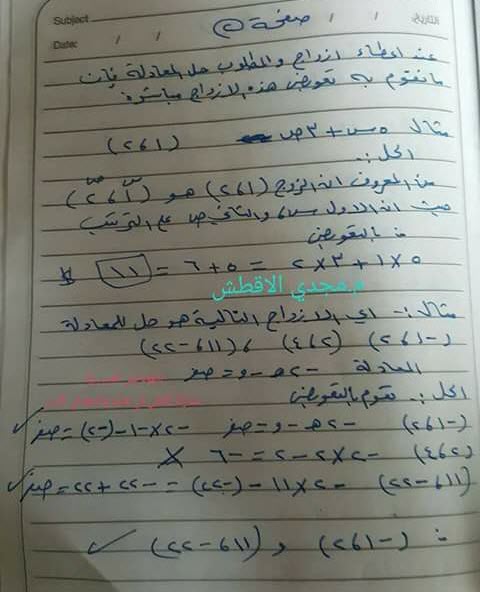 Subject
التاريخ: / /
Date: / /
صفحة ٥
عند اعطاء ازواج والمطلوب حل المعادلة فإن
مانقوم به تعويض هذه الازواج مباشرة
مثال ٥س + ٣ص (٢٬١)
الحل :.
من المعروف ان الزوج (٢٬١) هو (أ٬٢)
حيث ان الاول س و الثاني ص على الترتيب
∴ بالتعويض
٥×١ + ٣×٢ = ٥ + ٦ = ١١
م.مجدي الاقطش
مثال :- اي الازواج التالية هو حل للمعادلة
(-٢٬١) (٤٬٢) ٬ (١١٬-٢٢)
المعادلة -٢هـ - و = صفر
الحل :. نقوم بالتعويض
(-٢٬١) -٢هـ - و = صفر -٢×-١-(-٢) = صفر ✓
(٤٬٢) -٢×٢-٢ = -٦ ✗
(١١٬-٢٢) -٢×١١-(-٢٢) = -٢٢+٢٢ = صفر ✓
∴ (-٢٬١) و (١١٬-٢٢) ✓